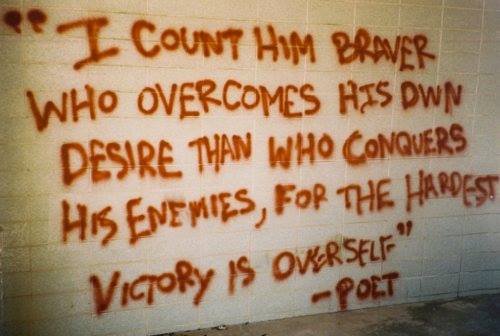 "I COUNT HIM BRAVER
WHO OVERCOMES HIS OWN
DESIRE THAN WHO CONQUERS
HIS ENEMIES, FOR THE HARDEST
VICTORY IS OVERSELF"
-POET